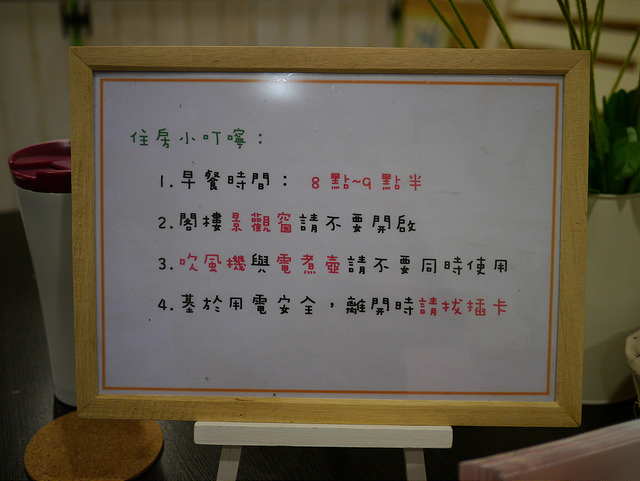 住房小叮嚀：
1. 早餐時間： 8點~9點半
2. 閣樓景觀窗請不要開啟
3. 吹風機與電煮壺請不要同時使用
4. 基於用電安全，離開時請拔插卡